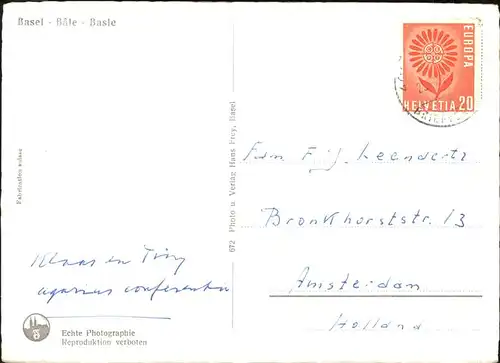 Basel - Bâle - Basle
EUROPA
HELVETIA 20
Fam Leendertz
Bronkhorststr. 13
Amsterdam
Holland
672 Photo u. Verlag Hans Frey, Basel
Fabrication suisse
Klaas en Tiny
Echte Photographie
Reproduktion verboten